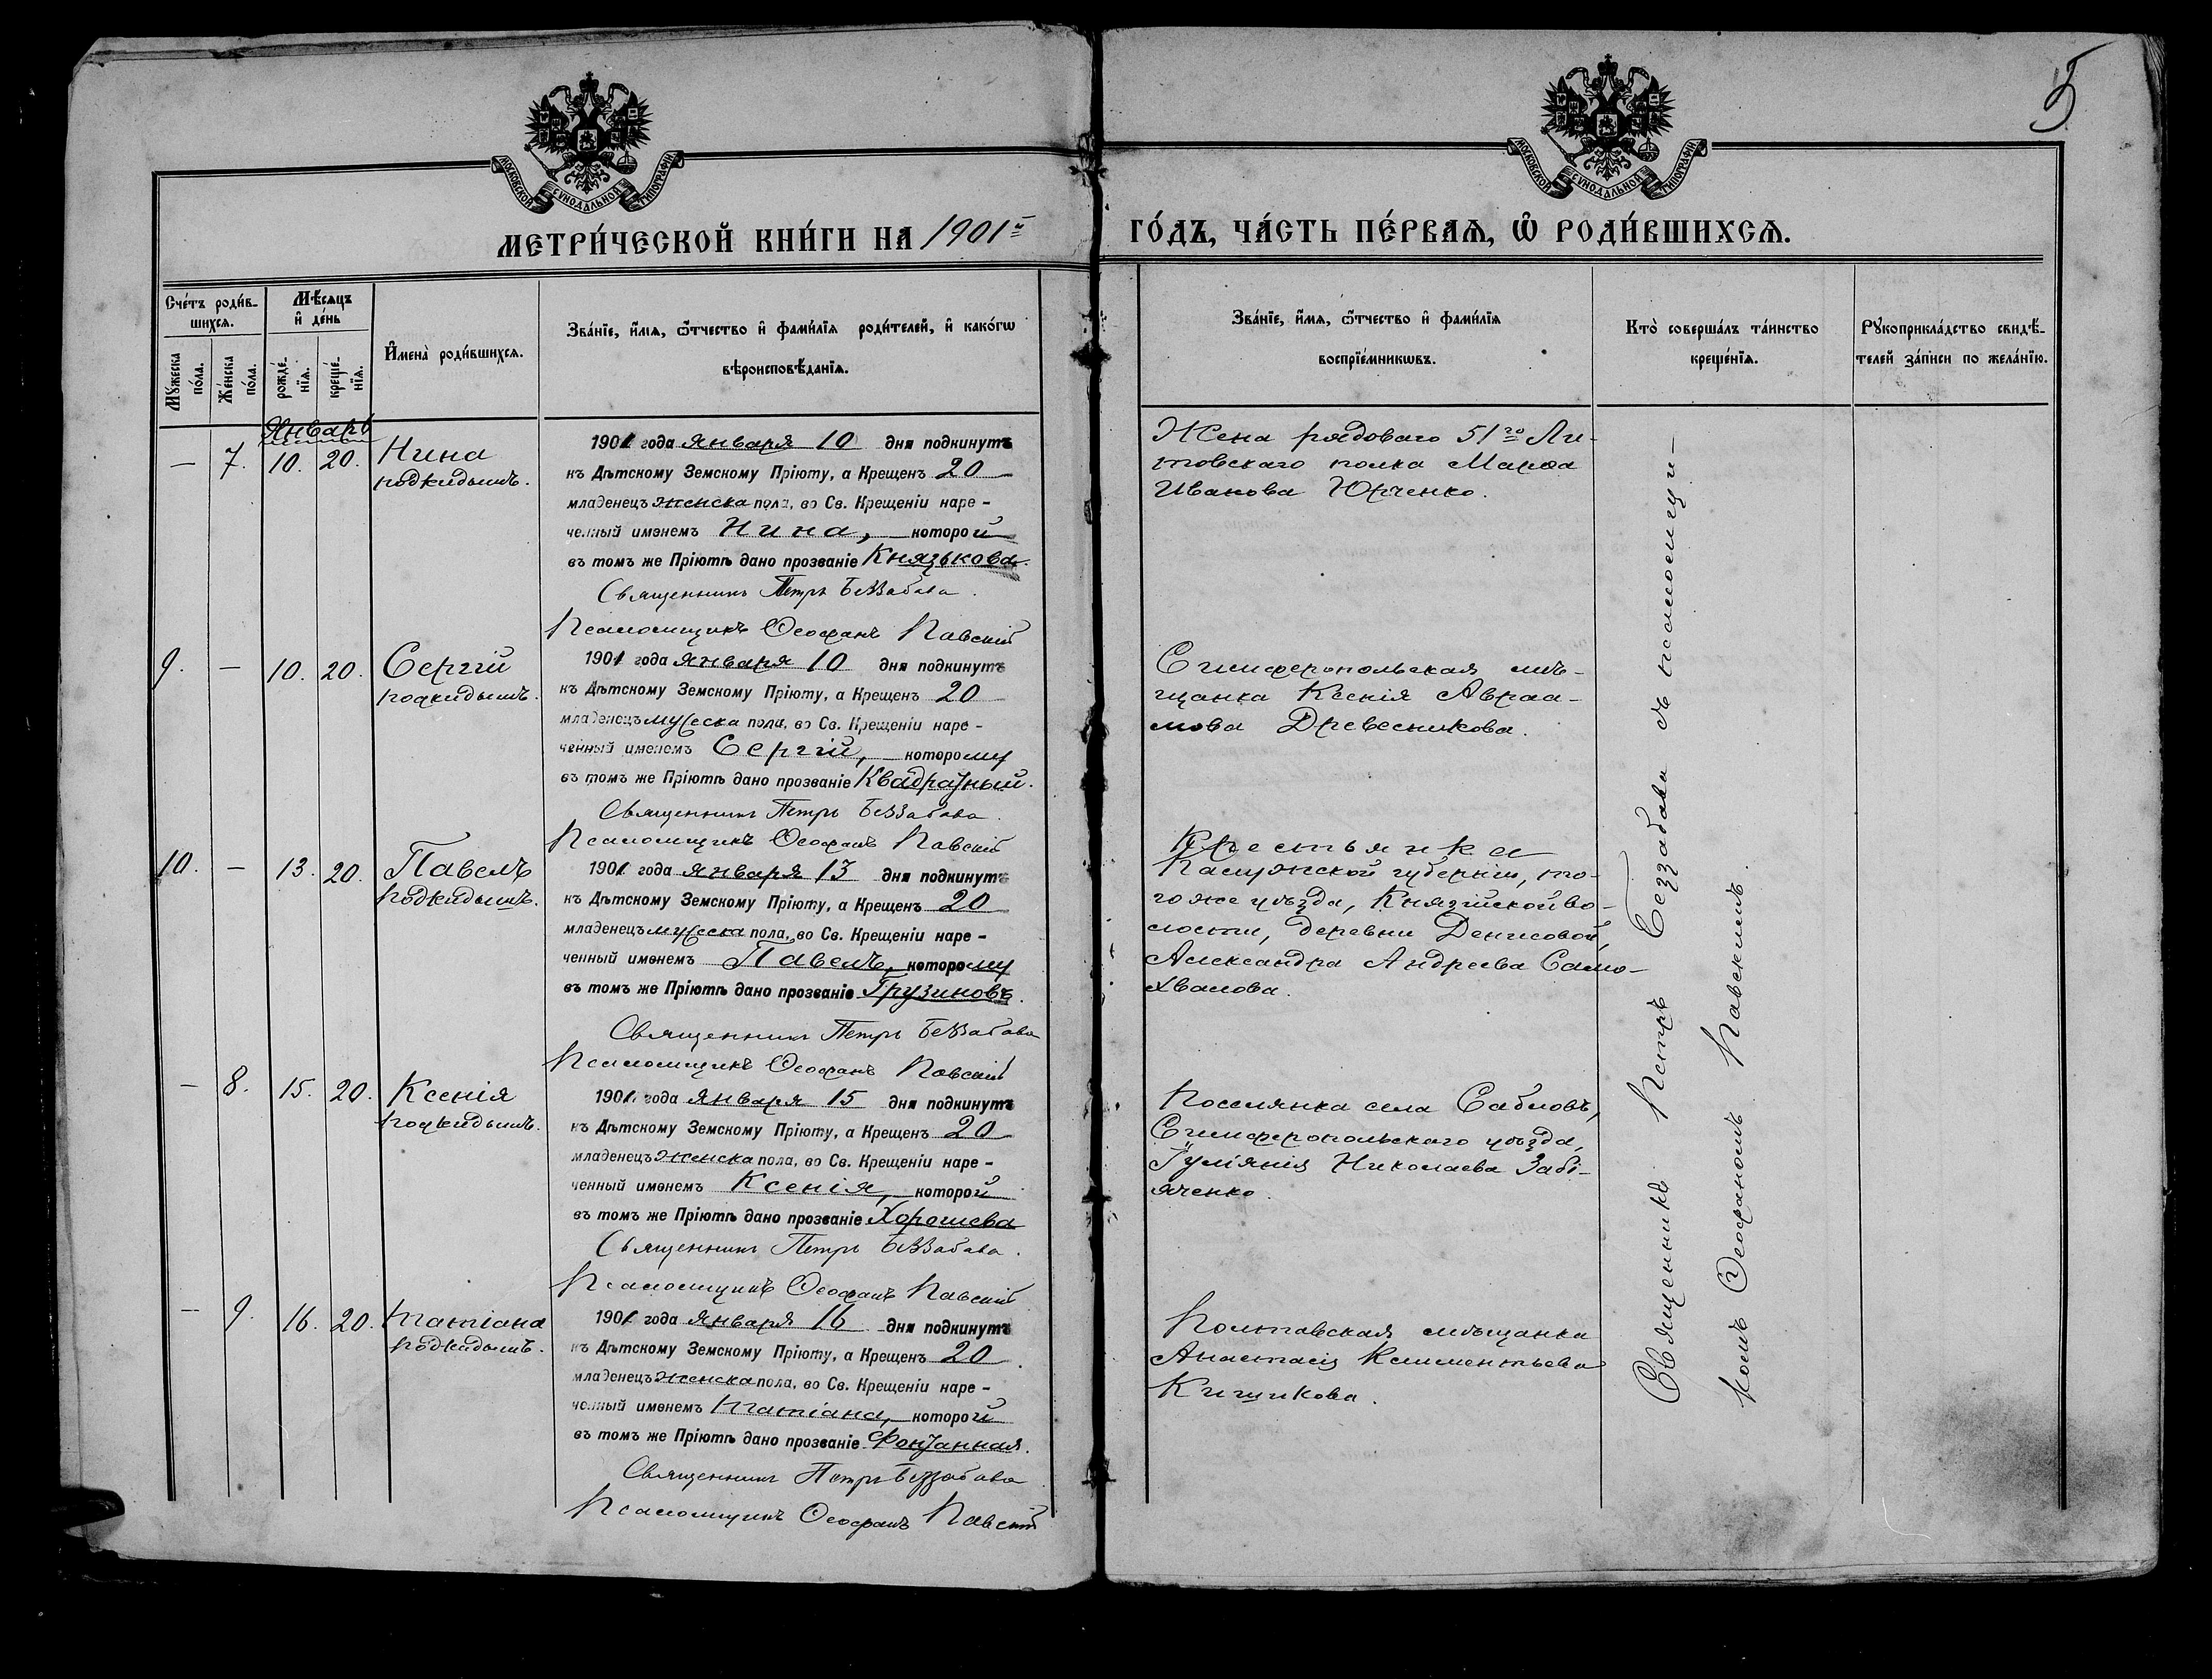 5
МОСКОВСКОЙ СѴНОДАЛЬНОЙ ТИПОГРАФІИ
МОСКОВСКОЙ СѴНОДАЛЬНОЙ ТИПОГРАФІИ
МЕТРИ́ЧЕСКОЙ КНИ́ГИ НА 1901й
ГО́ДЪ, ЧА́СТЬ ПЕ́РВАѦ, Ѽ РОДИ́ВШИХСѦ.
Сче́тъ роди́в-
шихсѧ.
Мꙋ́жеска по́ла.
Же́нска по́ла.
Мѣ́сѧцъ
и҆ де́нь
рожде́-
нїѧ.
креще́-
нїѧ.
И҆мена̀ роди́вшихсѧ.
Зва́нїе, и҆́мѧ, ѻ҆́тчество и҆ фами́лїѧ роди́телей, и҆ како́гѡ
вѣроисповѣ́данїѧ.
Зва́нїе, и҆́мѧ, ѻ҆́тчество и҆ фами́лїѧ
воспрїе́мникѡвъ.
Кто̀ соверша́лъ та́инство
креще́нїѧ.
Рꙋкоприкла́дство свидѣ́-
телей за́писи по жела́нїю.
Январь
— 7. 10. 20. Нина
подкидышъ.
1901 года января 10 дня подкинутъ
къ Дѣтскому Земскому Пріюту, а Крещенъ 20
младенецъ женска пола, во Св. Крещеніи наре-
ченный именемъ Нина, которой
въ томъ же Пріютѣ дано прозваніе Князькова.
Священникъ Петръ Беззабава.
Псаломщикъ Ѳеофанъ Павскій
Жена рядоваго 51го Ли-
товскаго полка Марѳа
Иванова Юрченко.
9. — 10. 20. Сергій
подкидышъ.
1901 года января 10 дня подкинутъ
къ Дѣтскому Земскому Пріюту, а Крещенъ 20
младенецъ мужеска пола, во Св. Крещеніи наре-
ченный именемъ Сергій, которому
въ томъ же Пріютѣ дано прозваніе Квадратный.
Священникъ Петръ Беззабава.
Псаломщикъ Ѳеофанъ Павскій
Симферопольская мѣ-
щанка Ксенія Авраа-
мова Древесникова.
10. — 13. 20. Павелъ
подкидышъ.
1901 года января 13 дня подкинутъ
къ Дѣтскому Земскому Пріюту, а Крещенъ 20
младенецъ мужеска пола, во Св. Крещеніи наре-
ченный именемъ Павелъ, которому
въ томъ же Пріютѣ дано прозваніе Грузиновъ.
Священникъ Петръ Беззабава
Псаломщикъ Ѳеофанъ Павскій
Крестьянка
Калужской губерніи, то-
гоже уѣзда, Князійской во-
лости, деревни Денисовой,
Александра Андреева Само-
хвалова.
— 8. 15. 20. Ксенія
подкидышъ.
1901 года января 15 дня подкинутъ
къ Дѣтскому Земскому Пріюту, а Крещенъ 20
младенецъ женска пола, во Св. Крещеніи наре-
ченный именемъ Ксенія, которой
въ томъ же Пріютѣ дано прозваніе Хорошева
Священникъ Петръ Беззабава.
Псаломщикъ Ѳеофанъ Павскій
Поселянка села Сабловъ,
Симферопольскаго уѣзда,
Іуліянія Николаева Забі-
яченко.
— 9. 16. 20. Татіана
подкидышъ.
1901 года января 16 дня подкинутъ
къ Дѣтскому Земскому Пріюту, а Крещенъ 20.
младенецъ женска пола, во Св. Крещеніи наре-
ченный именемъ Татіана, которой
въ томъ же Пріютѣ дано прозваніе Фонтанная.
Священникъ Петръ Беззабава
Псаломщикъ Ѳеофанъ Павскій
Полтавская мѣщанка
Анастасія Климентьева
Кищикова.
Священникъ Петръ Беззабава съ псаломщи-
комъ Ѳеофаномъ Павскимъ.